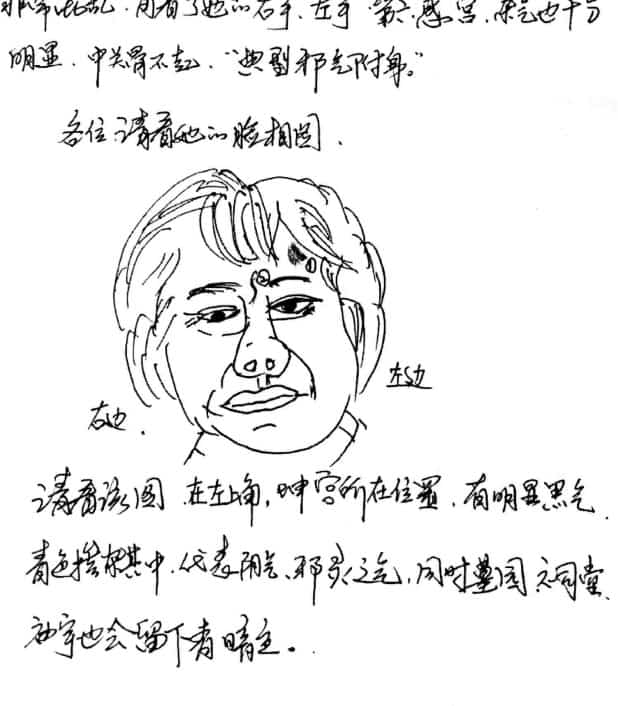 她的右手.左手 第六感宫. 气也十分
明显.中关骨不起."典型邪气附身。"
各位请看她的脸相图.
左边
右边.
请看该图.在左上角,坤宫所在位置.有明显黑气.
青色掺杂其中.代表阴气、邪灵之气,同时墓园
也会留下青暗色。